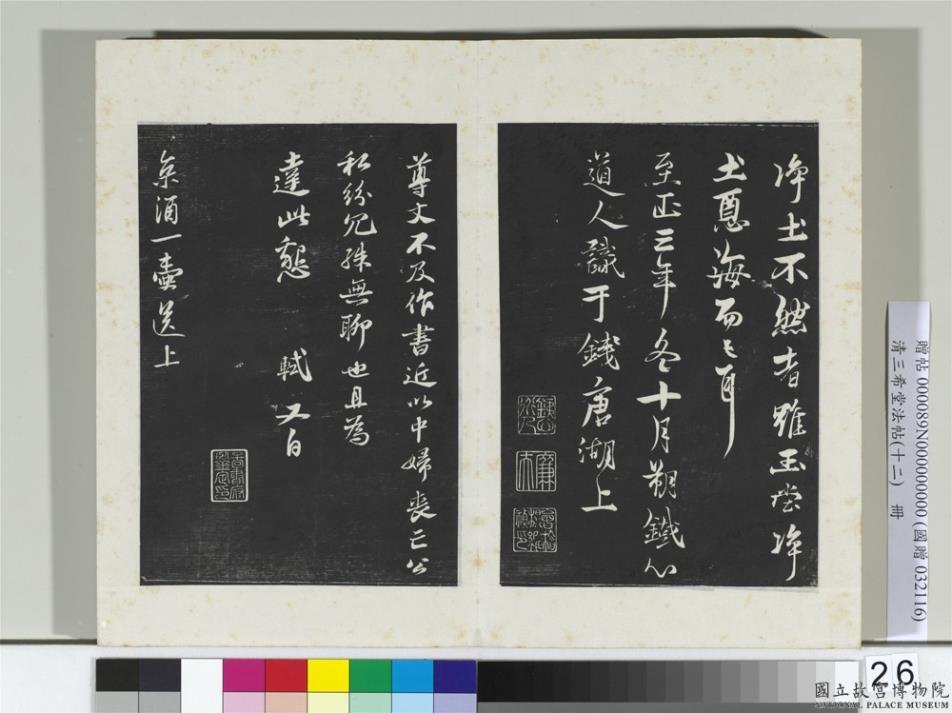 净土不然者雖玉堂净
土惡海而已耳
至正三年冬十月朔鐵心
道人識于錢唐湖上
尊丈不及作書近以中婦喪亡公
私紛冗殊無聊也且為
達此懇 軾又白
京酒一壺送上
贈帖 000089N000000000 (國贈 032116)
清三希堂法帖(十二) 冊
26
國立故宮博物院
NATIONAL PALACE MUSEUM